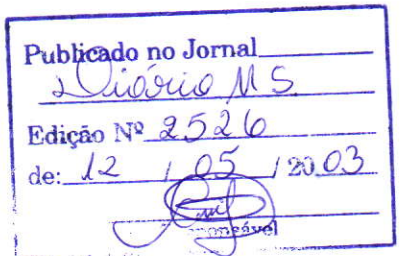 Publicado no Jornal
Diário MS
Edição Nº 2526
de: 12 / 05 / 2003
Responsável